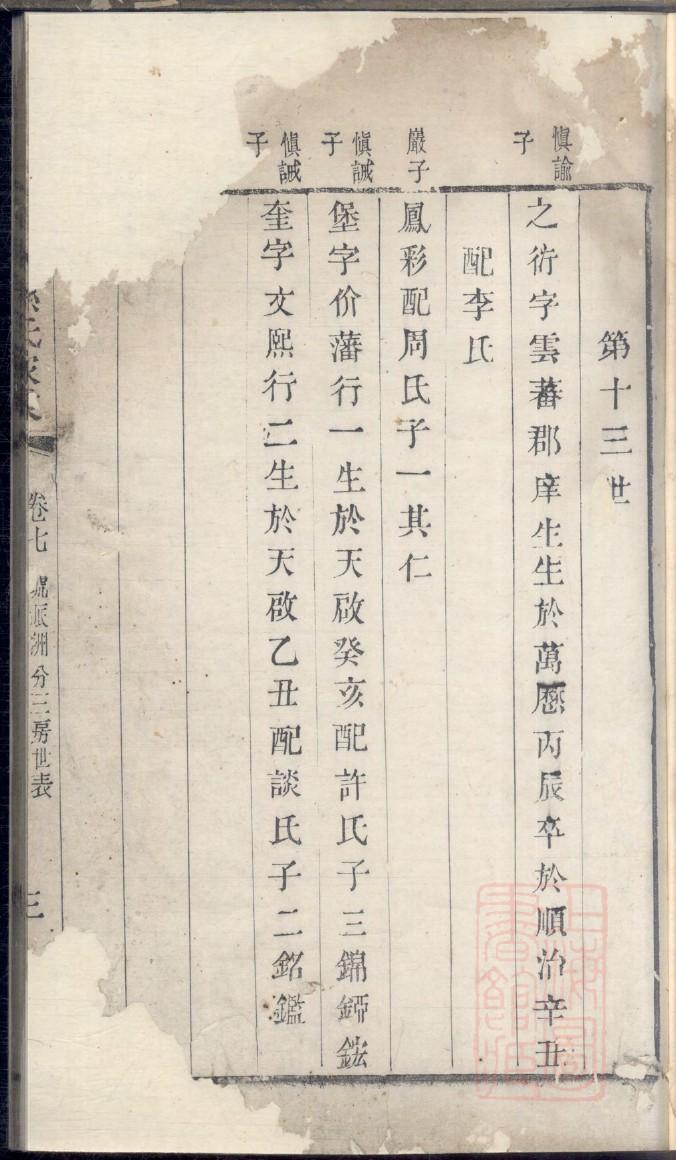 第十三世
慎諭子
之衍字雲蕃郡庠生生於萬歷丙辰卒於順治辛丑
配李氏
嚴子
鳳彩配周氏子一其仁
慎誠子
堡字价藩行一生於天啟癸亥配許氏子三錦鎁鋐
慎誠子
奎字文熙行二生於天啟乙丑配談氏子二銘鑑
氏家
卷七
派洲分三房世表
三